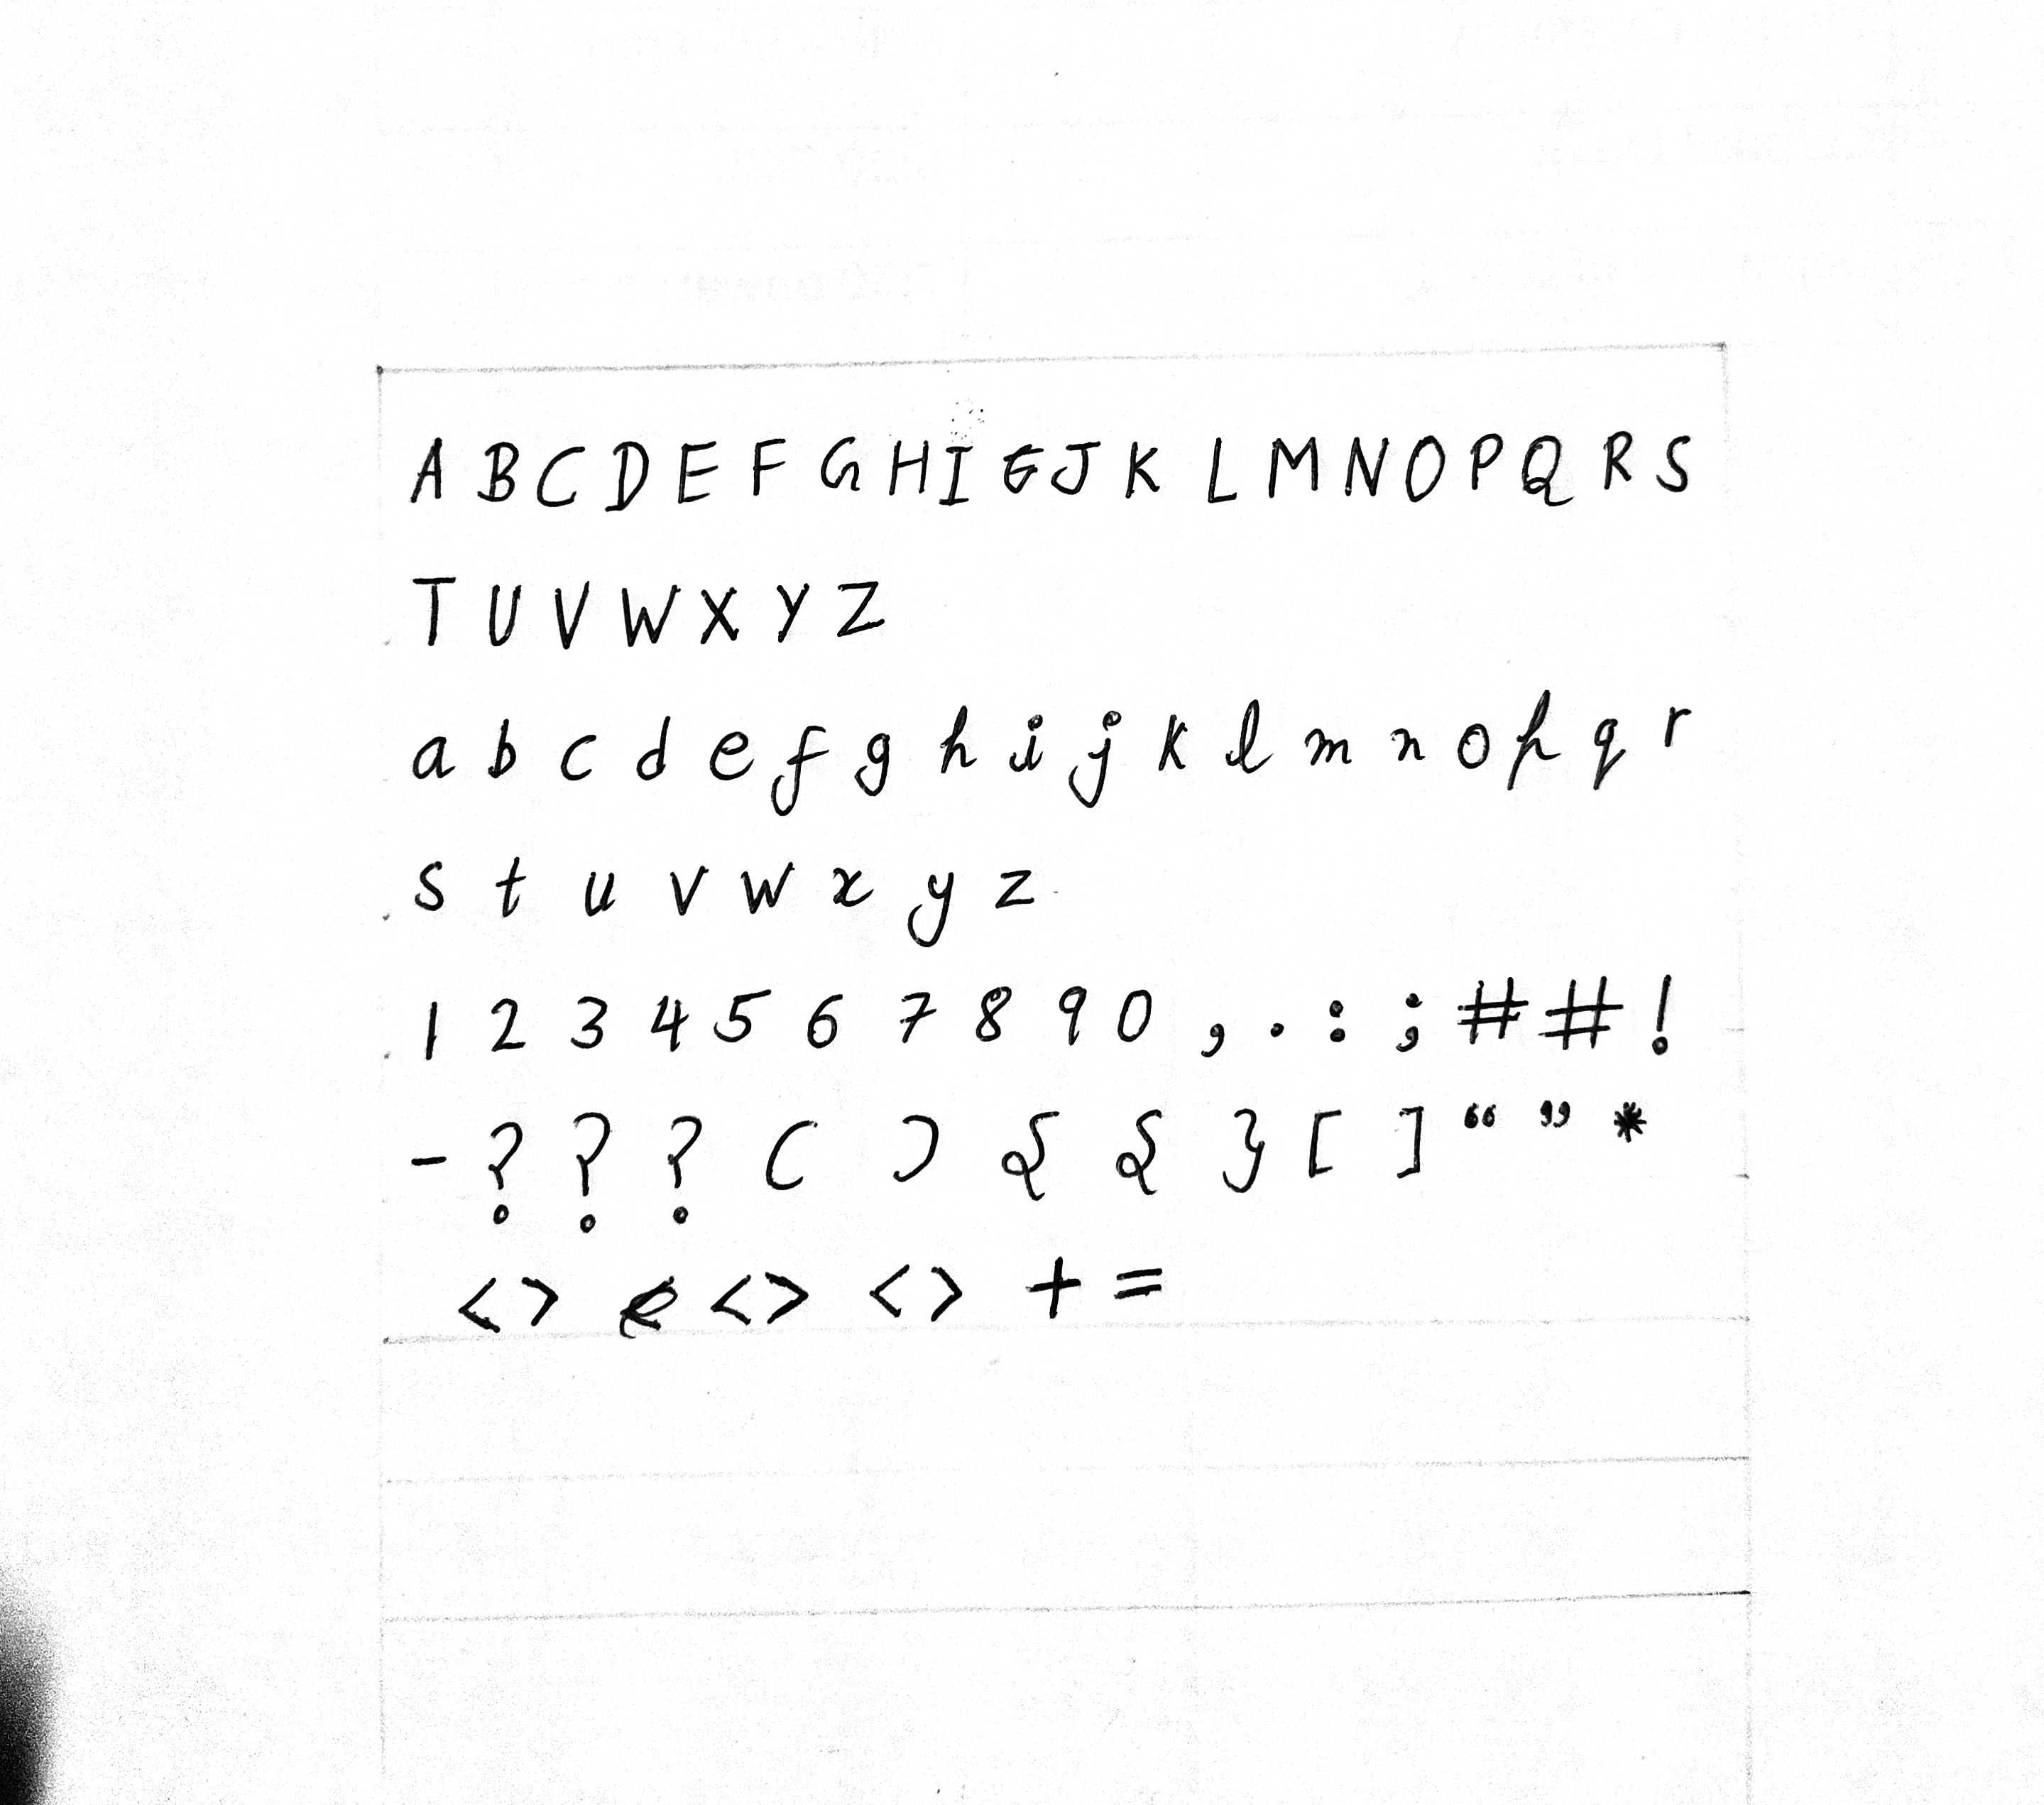 A B C D E F G H I G J K L M N O P Q R S
T U V W X Y Z
a b c d e f g h i j k l m n o p q r
s t u v w x y z
1 2 3 4 5 6 7 8 9 0 , . : ; # # !
- ? ? ? ( ) { { } [ ] “ ” *
< > < > < > + =